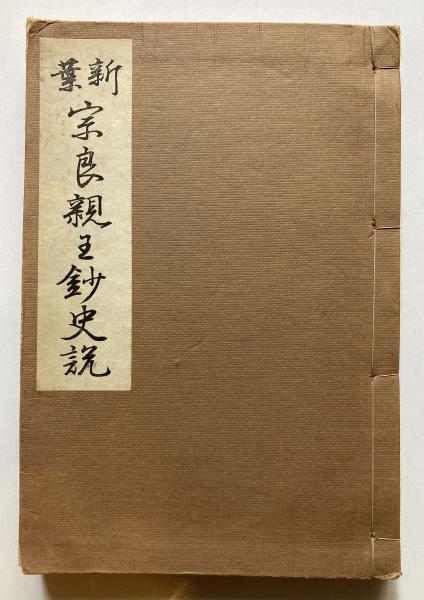 新葉
宗良親王鈔史説